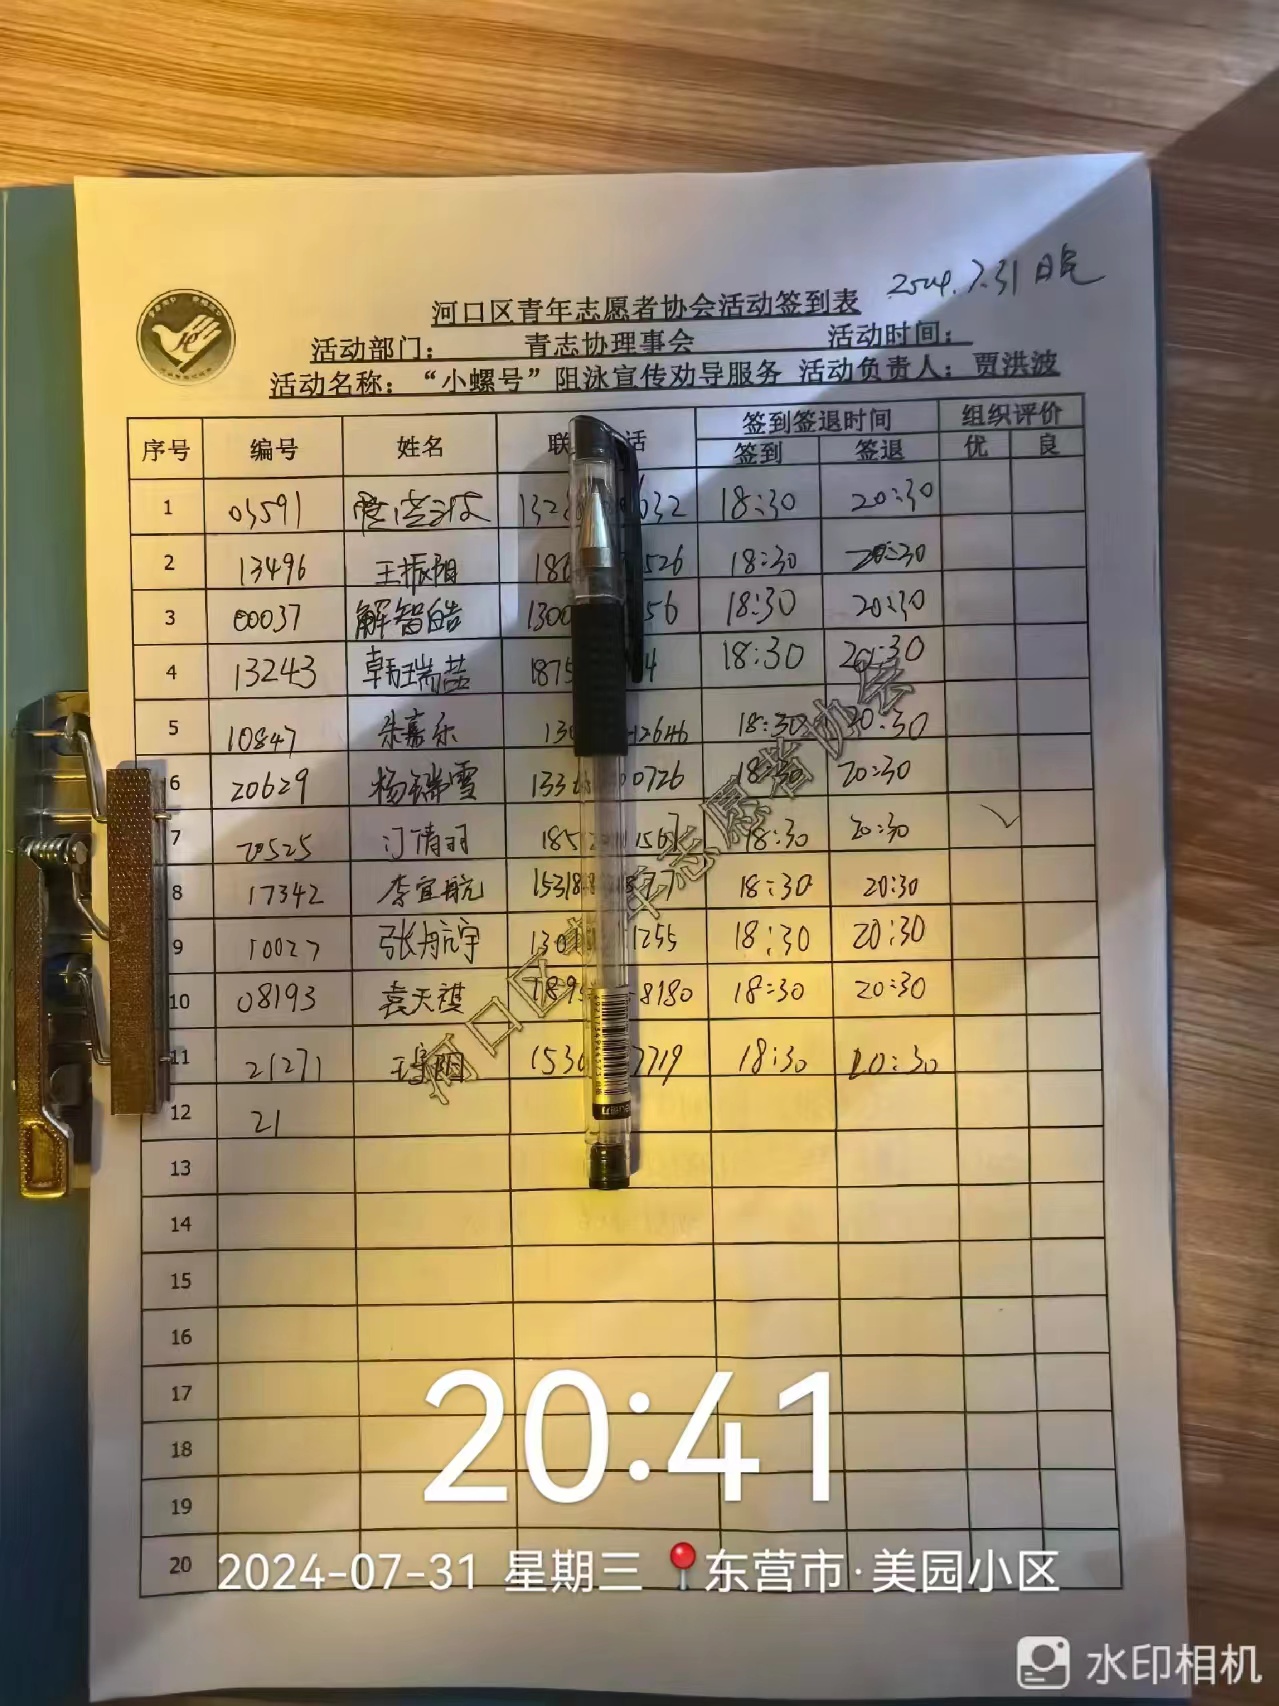 2024.7.31 日
河口区青年志愿者协会活动签到表
活动部门: 青志协理事会 活动时间:
活动名称: “小螺号”阻泳宣传劝导服务 活动负责人: 贾洪波
序号 编号 姓名 联 话 签到签退时间 组织评价
签到 签退 优 良
1 03591 132 632 18:30 20:30
2 13496 王振阳 186 526 18:30 20:30
3 00037 解智皓 1300 56 18:30 20:30
4 13243 韩瑞喆 1875 4 18:30 20:30
5 10847 朱嘉乐 130 12646 18:30 20:30
6 20629 杨瑞雪 133 00726 18:30 20:30
7 20525 185 1567 18:30 20:30 ✓
8 17342 李宜航 15318 77 18:30 20:30
9 10027 张舟宇 130 1255 18:30 20:30
10 08193 袁天祺 189 8180 18:30 20:30
11 21271 153 7719 18:30 20:30
12 21
13
14
15
16
17
18
19
20
河口区青年志愿者协会
20:41
2024-07-31 星期三 东营市·美园小区
水印相机